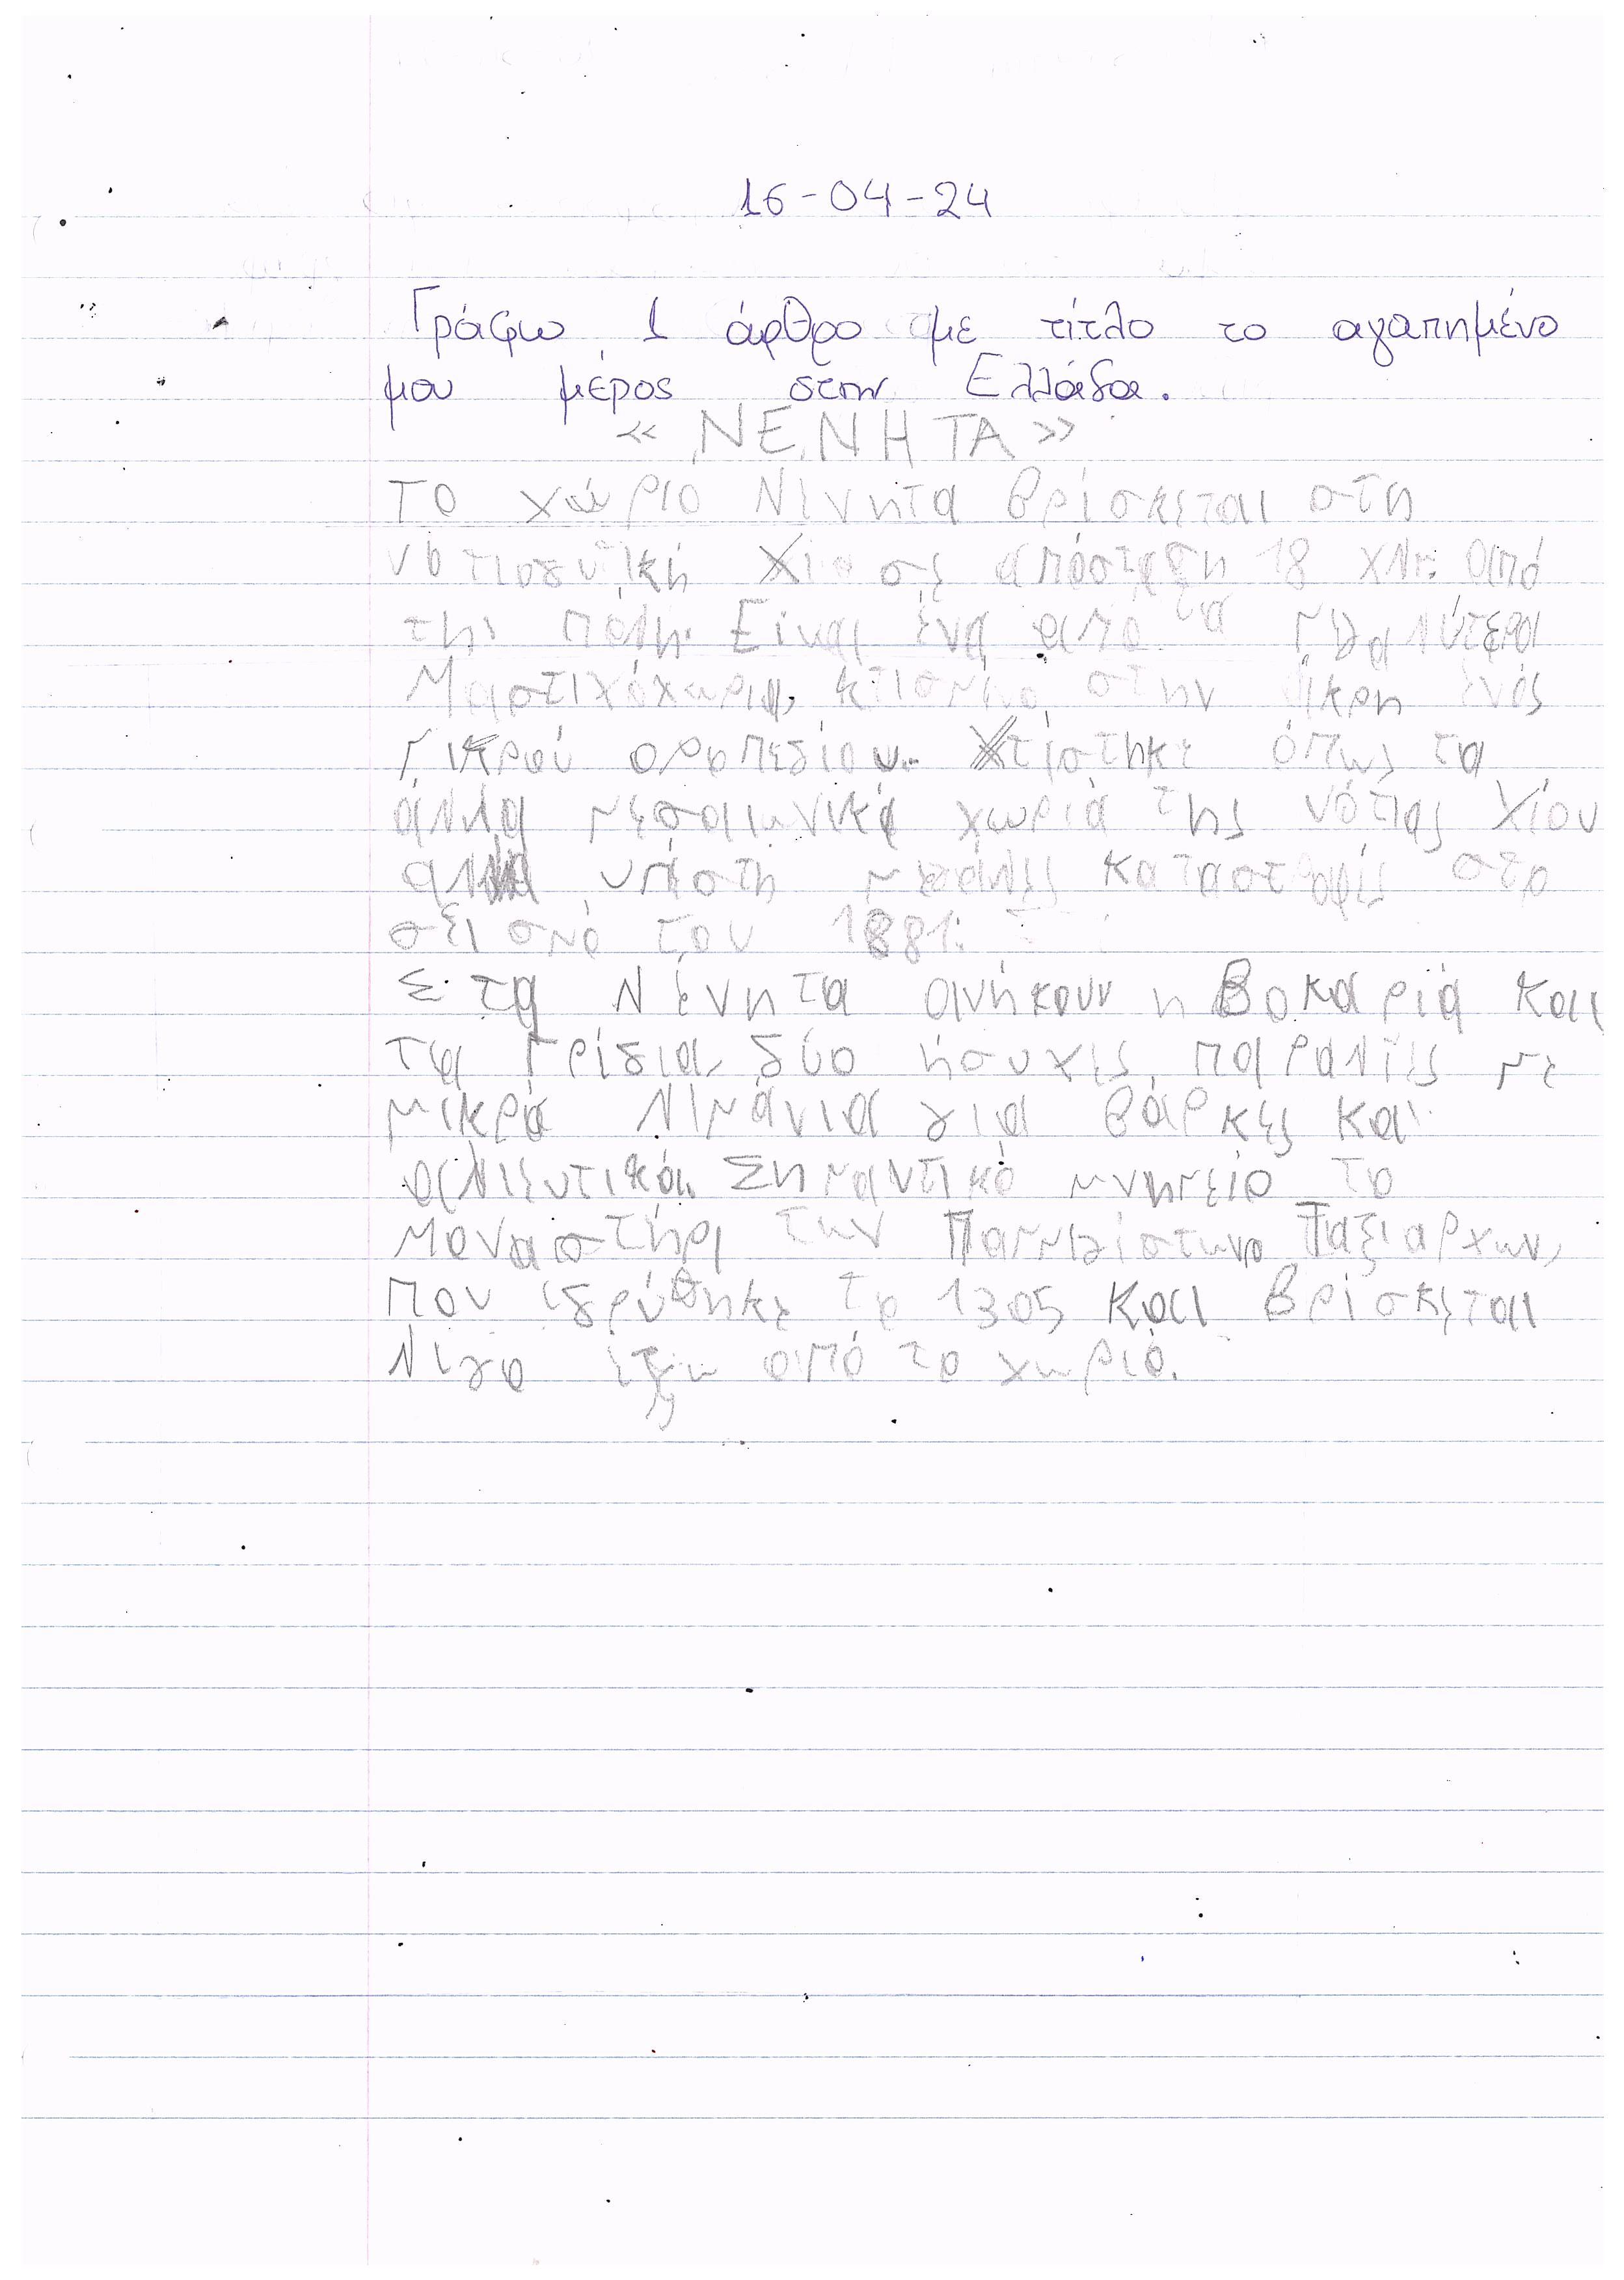 16-04-24
Γράφω 1 άρθρο με τίτλο το αγαπημένο
μου μέρος στην Ελλάδα.
«ΝΕΝΗΤΑ»
Το χώριο Νένητα βρίσκεται στη
νοτιοδυτική Χίο σε απόσταση 18 χλμ. από
την πόλη. Είναι ένα από τα μεγαλύτερα
Μαστιχόχωρια, κτισμένο στην άκρη ενός
μικρού οροπεδίου. Χτίστηκε όπως τα
άλλα μεσαιωνικά χωριά της νότιας Χίου
αλλά υπέστη μεγάλες καταστροφές στο
σεισμό του 1881.
Στα Νένητα ανήκουν η Βοκαριά και
τα Γρίδια, δύο ήσυχες παραλίες με
μικρά λιμάνια για βάρκες και
αλιευτικά. Σημαντικό μνημείο το
μοναστήρι των Παμμεγίστων Ταξιαρχων,
που ιδρύθηκε το 1305 και βρίσκεται
λίγο έξω από το χωριό.